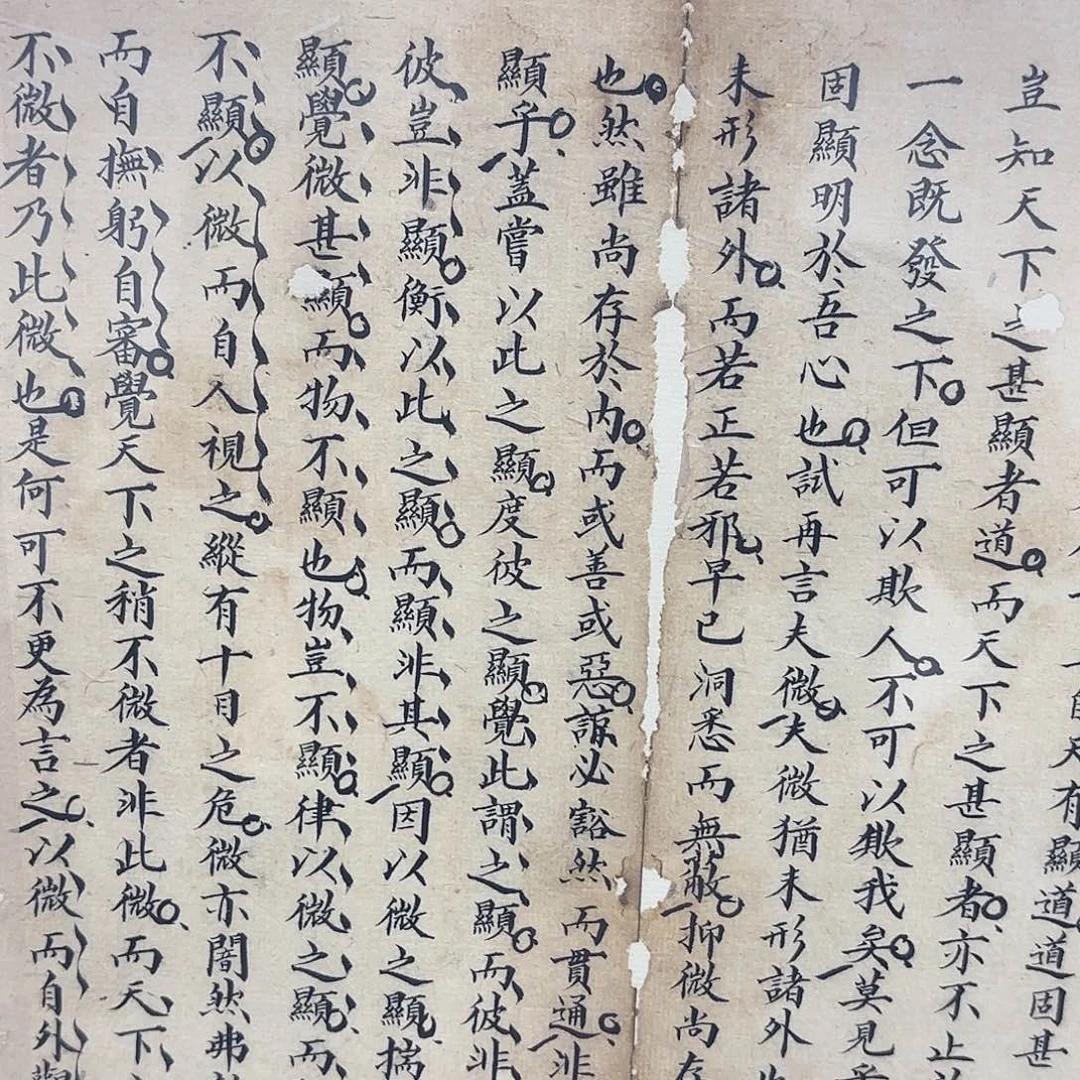 天有顯道道固甚
豈知天下之甚顯者道而天下之甚顯者亦不止
一念既發之下但可以欺人不可以欺我矣莫見乎
固顯明於吾心也試再言夫微夫微猶未形諸外也
未形諸外而若正若邪早已洞悉而無蔽抑微尚存
也然雖尚存於內而或善或惡諒必豁然而貫通非
顯乎蓋嘗以此之顯度彼之顯覺此謂之顯而彼非
彼豈非顯衡以此之顯而顯非其顯因以微之顯揣
顯覺微甚顯而物不顯也物豈不顯律以微之顯而
不顯以微而自人視之縱有十目之危微亦闇然弗
而自撫躬自審覺天下之稍不微者非此微而天下
不微者乃此微也是何可不更為言之以微而自外觀